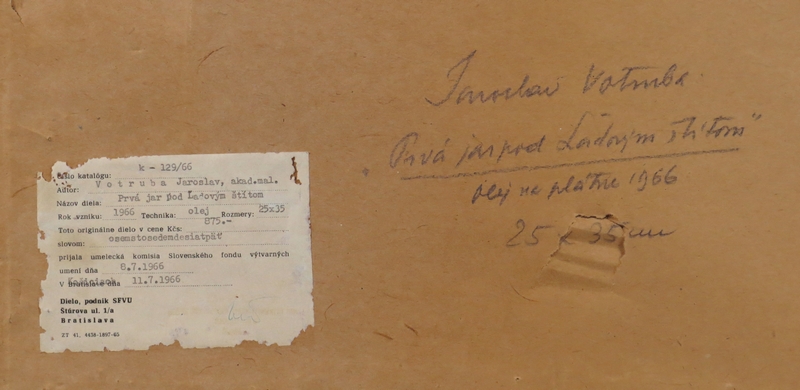 k - 129/66
Číslo katalógu:
Votruba Jaroslav, akad.mal.
Autor:
Názov diela: Prvá jar pod Ľadovým štítom
Rok vzniku: 1966 Technika: olej Rozmery: 25x35
875.-
Toto originálne dielo v cene Kčs:
slovom: osemstosedemdesiatpäť
prijala umelecká komisia Slovenského fondu výtvarných
umení dňa 8.7.1966
V Bratislave dňa 11.7.1966
Dielo, podnik SFVU
Štúrova ul. 1/a
Bratislava
ZT 41, 4438-1807-65
Jaroslav Votruba
"Prvá jar pod Ľadovým štítom"
olej na plátne 1966
25 x 35 cm